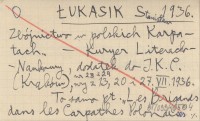 O ŁUKASIK Stanisław 1936.
Zbójnictwo w polskich Karpa-
tach. — Kuryer Literack-
Naukowy, dodatek do I.K.C.
(Kraków) nr 28 i 29
z 13, 20 i 27. VII. 1936.
To samo pt. „Les brigands
dans les Carpathes polonaises